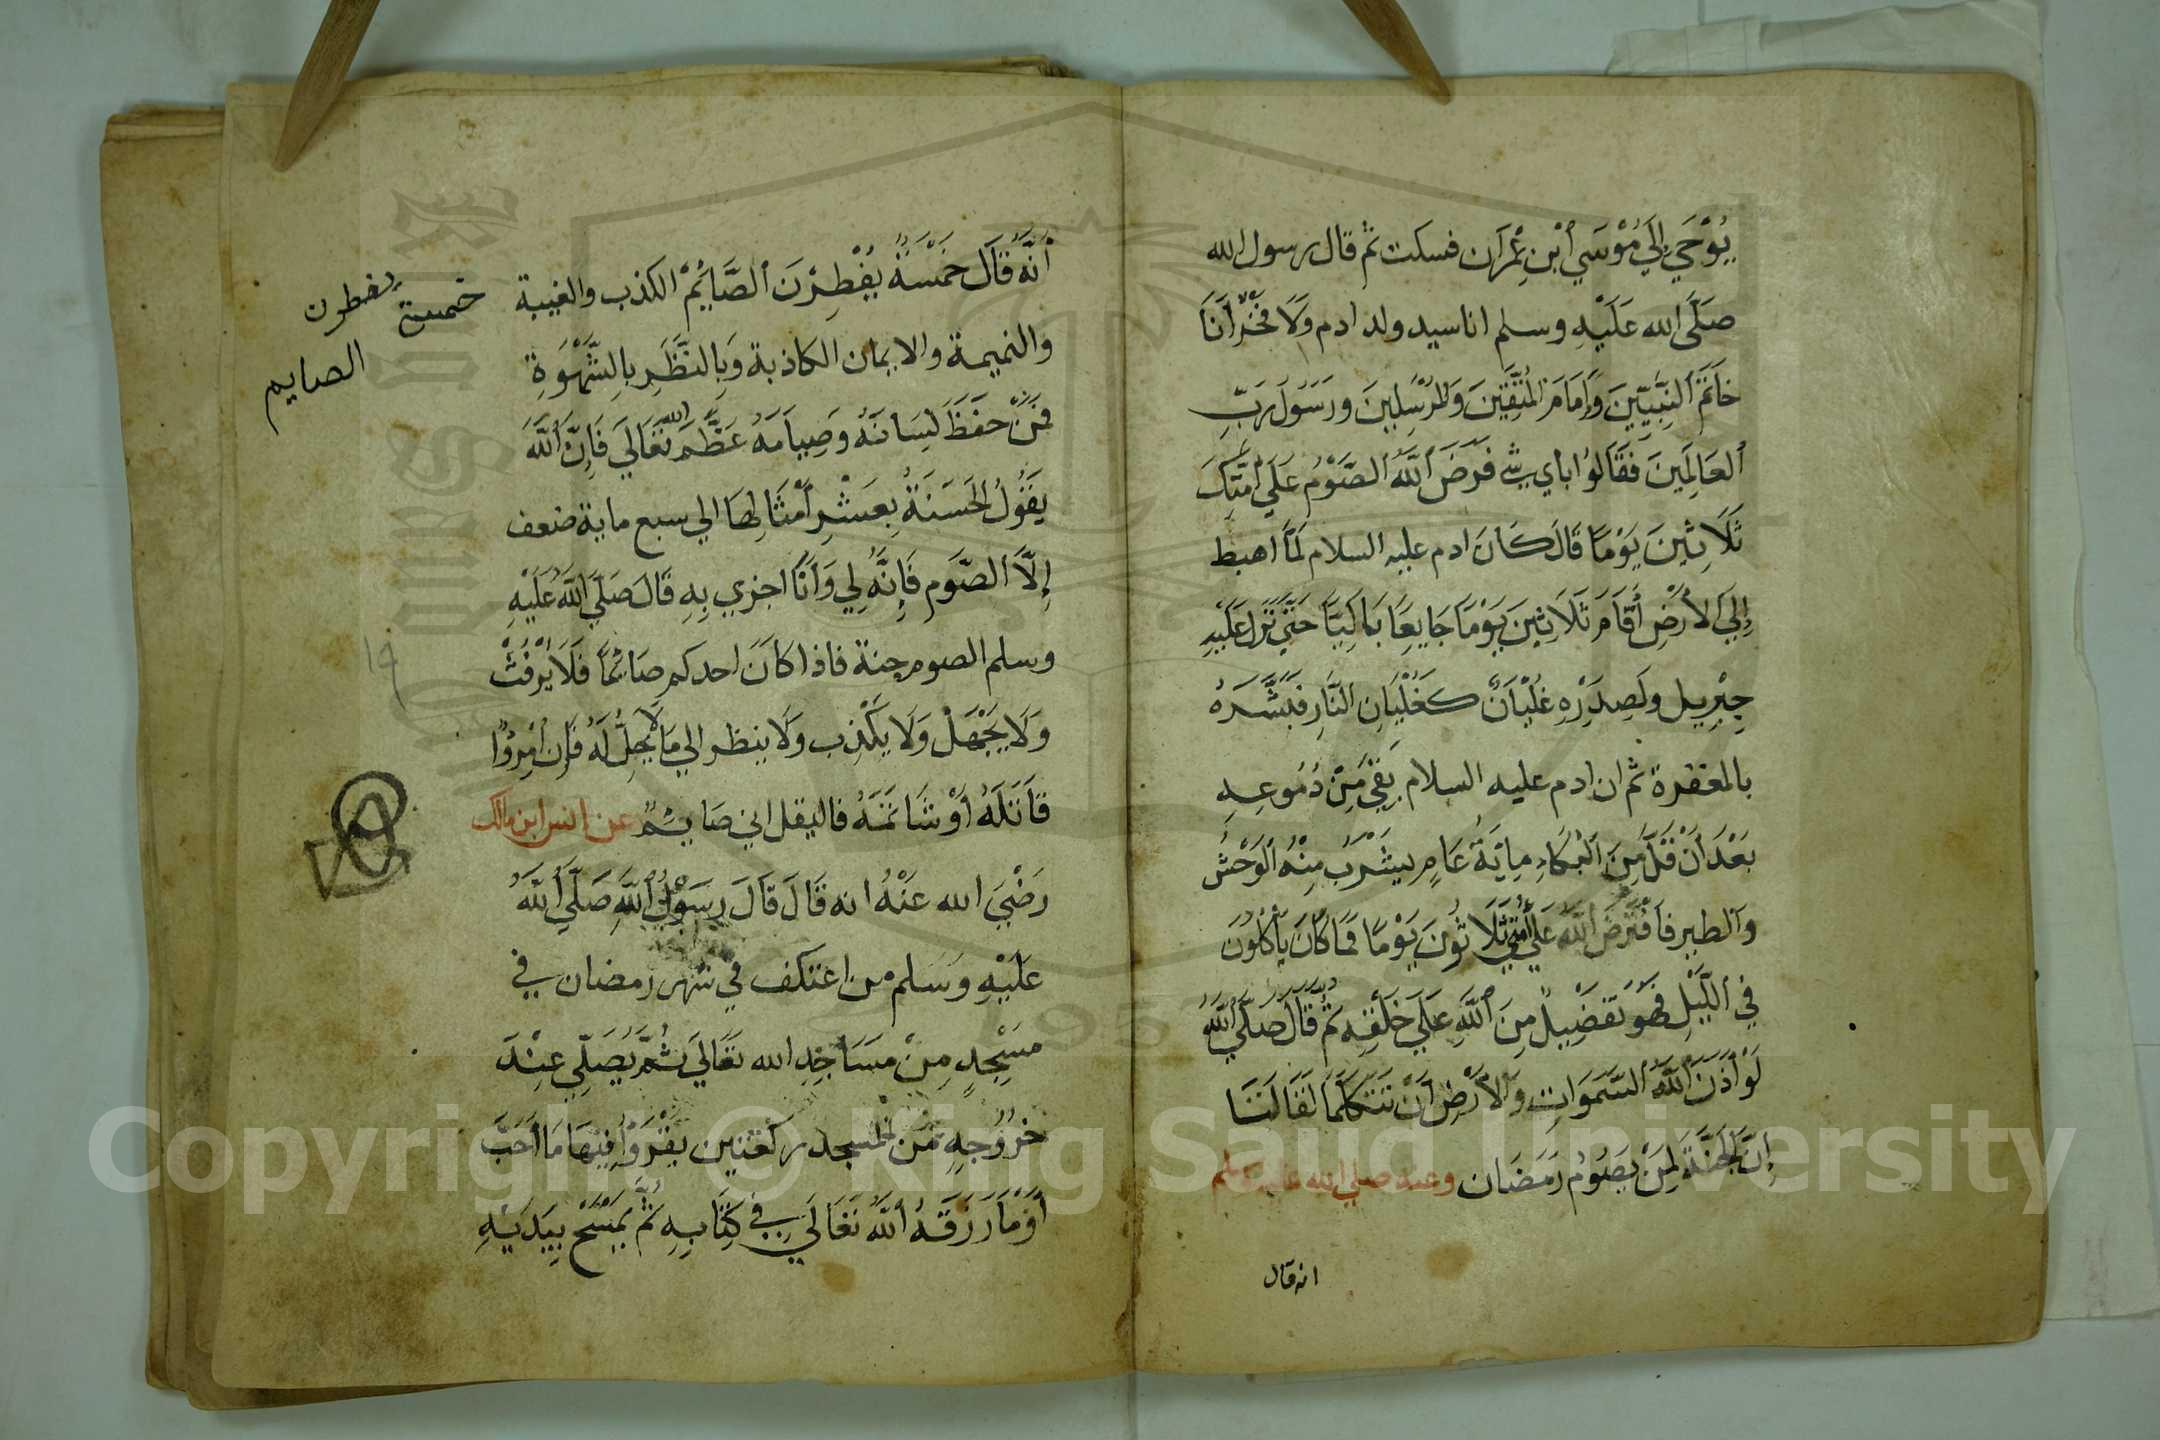 يُوْحَي إِلَيَ مُوْسَي ٱبْنِ عِمْرَان فسكت ثم قال رسول الله
صَلَّى الله عَلَيْهِ وسلم انا سيد ولد ادم وَلَا فَخْرَ أَنَا
خَاتَمَ ٱلنَّبِيّيْنَ وَإِمَامَ ٱلْمُتَّقِيْنَ وَٱلْمُرْسَلِينَ وَرَسُولَ رَبِّ
ٱلعَالَمِينَ فَقَالُوا باي شي فَرَضَ ٱللَّهُ ٱلصَّوْمُ عَلَي أُمَّتِكَ
ثَلَاثِينَ يَوْمًا قَالَ كَانَ ادم عليه السلام لَمَّا اهبط
إِلَيَ الأَرْضِ أَقَامَ ثَلَاثِينَ يَوْمًا جَايِعًا بَاكِيًا حَتَّي نَزَلَ عَلَيْهِ
جِبْرِيل ولَصِدْرِهِ غُلْيَانٌ كَغُلْيَانِ النَّارِ فَبَشَّرَهُ
بالمغفرة ثم ان ادم عليه السلام بَقِيَ مِنْ دُمُوعِهِ
بَعْدَ أَنْ قَلَّ مِنَ ٱلْبُكَاءِ مِايَةُ عَامٍ يَشْرَبُ مِنْهُ ٱلوَحْشُ
وَٱلطير فَافْتَرَضَ ٱللَّهُ عَلَي أُمَّتِي ثَلَاثُونَ يَوْمًا فَمَا كَانَ يَأْكُلُونَ
فِي ٱللَّيْلِ فَهُوَ تَفْضِيلٌ مِنَ ٱللَّهِ عَلَي خَلْقِهِ ثُمَّ قَالَ صَلَّي ٱللَّهُ
لَوْ أَذِنَ ٱللَّهُ السَّمَوَاتِ وَالأَرْضِ أَنْ تَتَكَلَّمَا لَقَالَتَا
إِنَّ الجَنَّةَ لِمَنْ يَصُوْمُ رَمَضَان وعنه صلي الله عليه وسلم
انه قال
أَنَّهُ قَالَ خَمْسَةٌ يُفْطِرْنَ ٱلصَّايِمْ الكذب والغيبة
والنميمة والايمان الكاذبة وَبِالنَّظَرِ بِالشَّهْوَةِ
فَمَنْ حَفَظَ لِسَانَهُ وصِيَامَهُ عَظَّمَ اللهَ تَعَالَي فَإِنَّ ٱللَّهَ
يَقُوْلُ الحَسَنَةُ بِعَشْرِ أَمْثَالِهَا الي سبع ماية ضعف
إِلَّا ٱلصَّوم فَإِنَّهُ لِي وَأَنَا اجزي بِهِ قَالَ صَلَّيَ اللَّهُ عَلَيْهِ
وسلم الصوم جنة فاذا كَانَ احدكم صَائمًا فَلَا يَرْفُثْ
وَلَا يَجْهَلْ وَلَا يَكْذِب وَلَا ينظر الي مَا لَا يَحِلُّ لَهُ فَإِن أَمْرُؤٌا
قَاتَلَهُ أَوْ شَاتَمَهُ فاليقل اني صَايِمٌ عن انس ابن مالك
رَضْيَ الله عَنْهُ انه قَالَ قَالَ رَسَوْلُ ٱللَّهِ صَلَّي ٱللَّهُ
عَلَيْهِ وَسَلم من اعتكف في شهر رمضان في
مَسْجِدٍ مِنْ مَسَاجِدِ الله تَعَالَي ثُمَّ يُصَلِّي عِنْدَ
خرُوْجِهِ مَن المسجد ركعتين يقْرَؤا فِيهَا مَا احَبَّ
أَوْ مَا رَزَقَهُ ٱللَّهُ تَعَالَي فِي كِتَابِهِ ثُمَّ يَمْسَحُ بِيَدَيْهِ
خمسة يفطرن
الصايم
١٩
Copyright © King Saud University